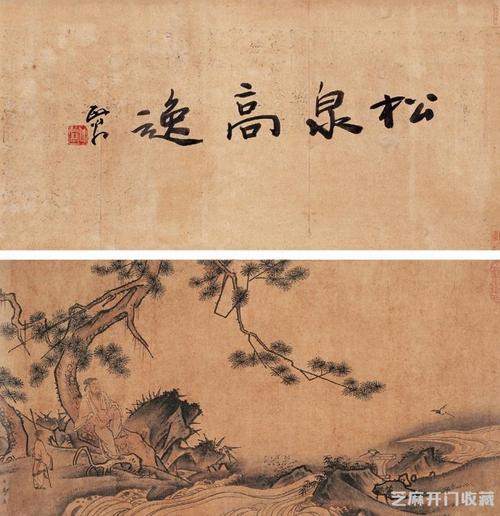 松泉高逸
芝麻开门收藏